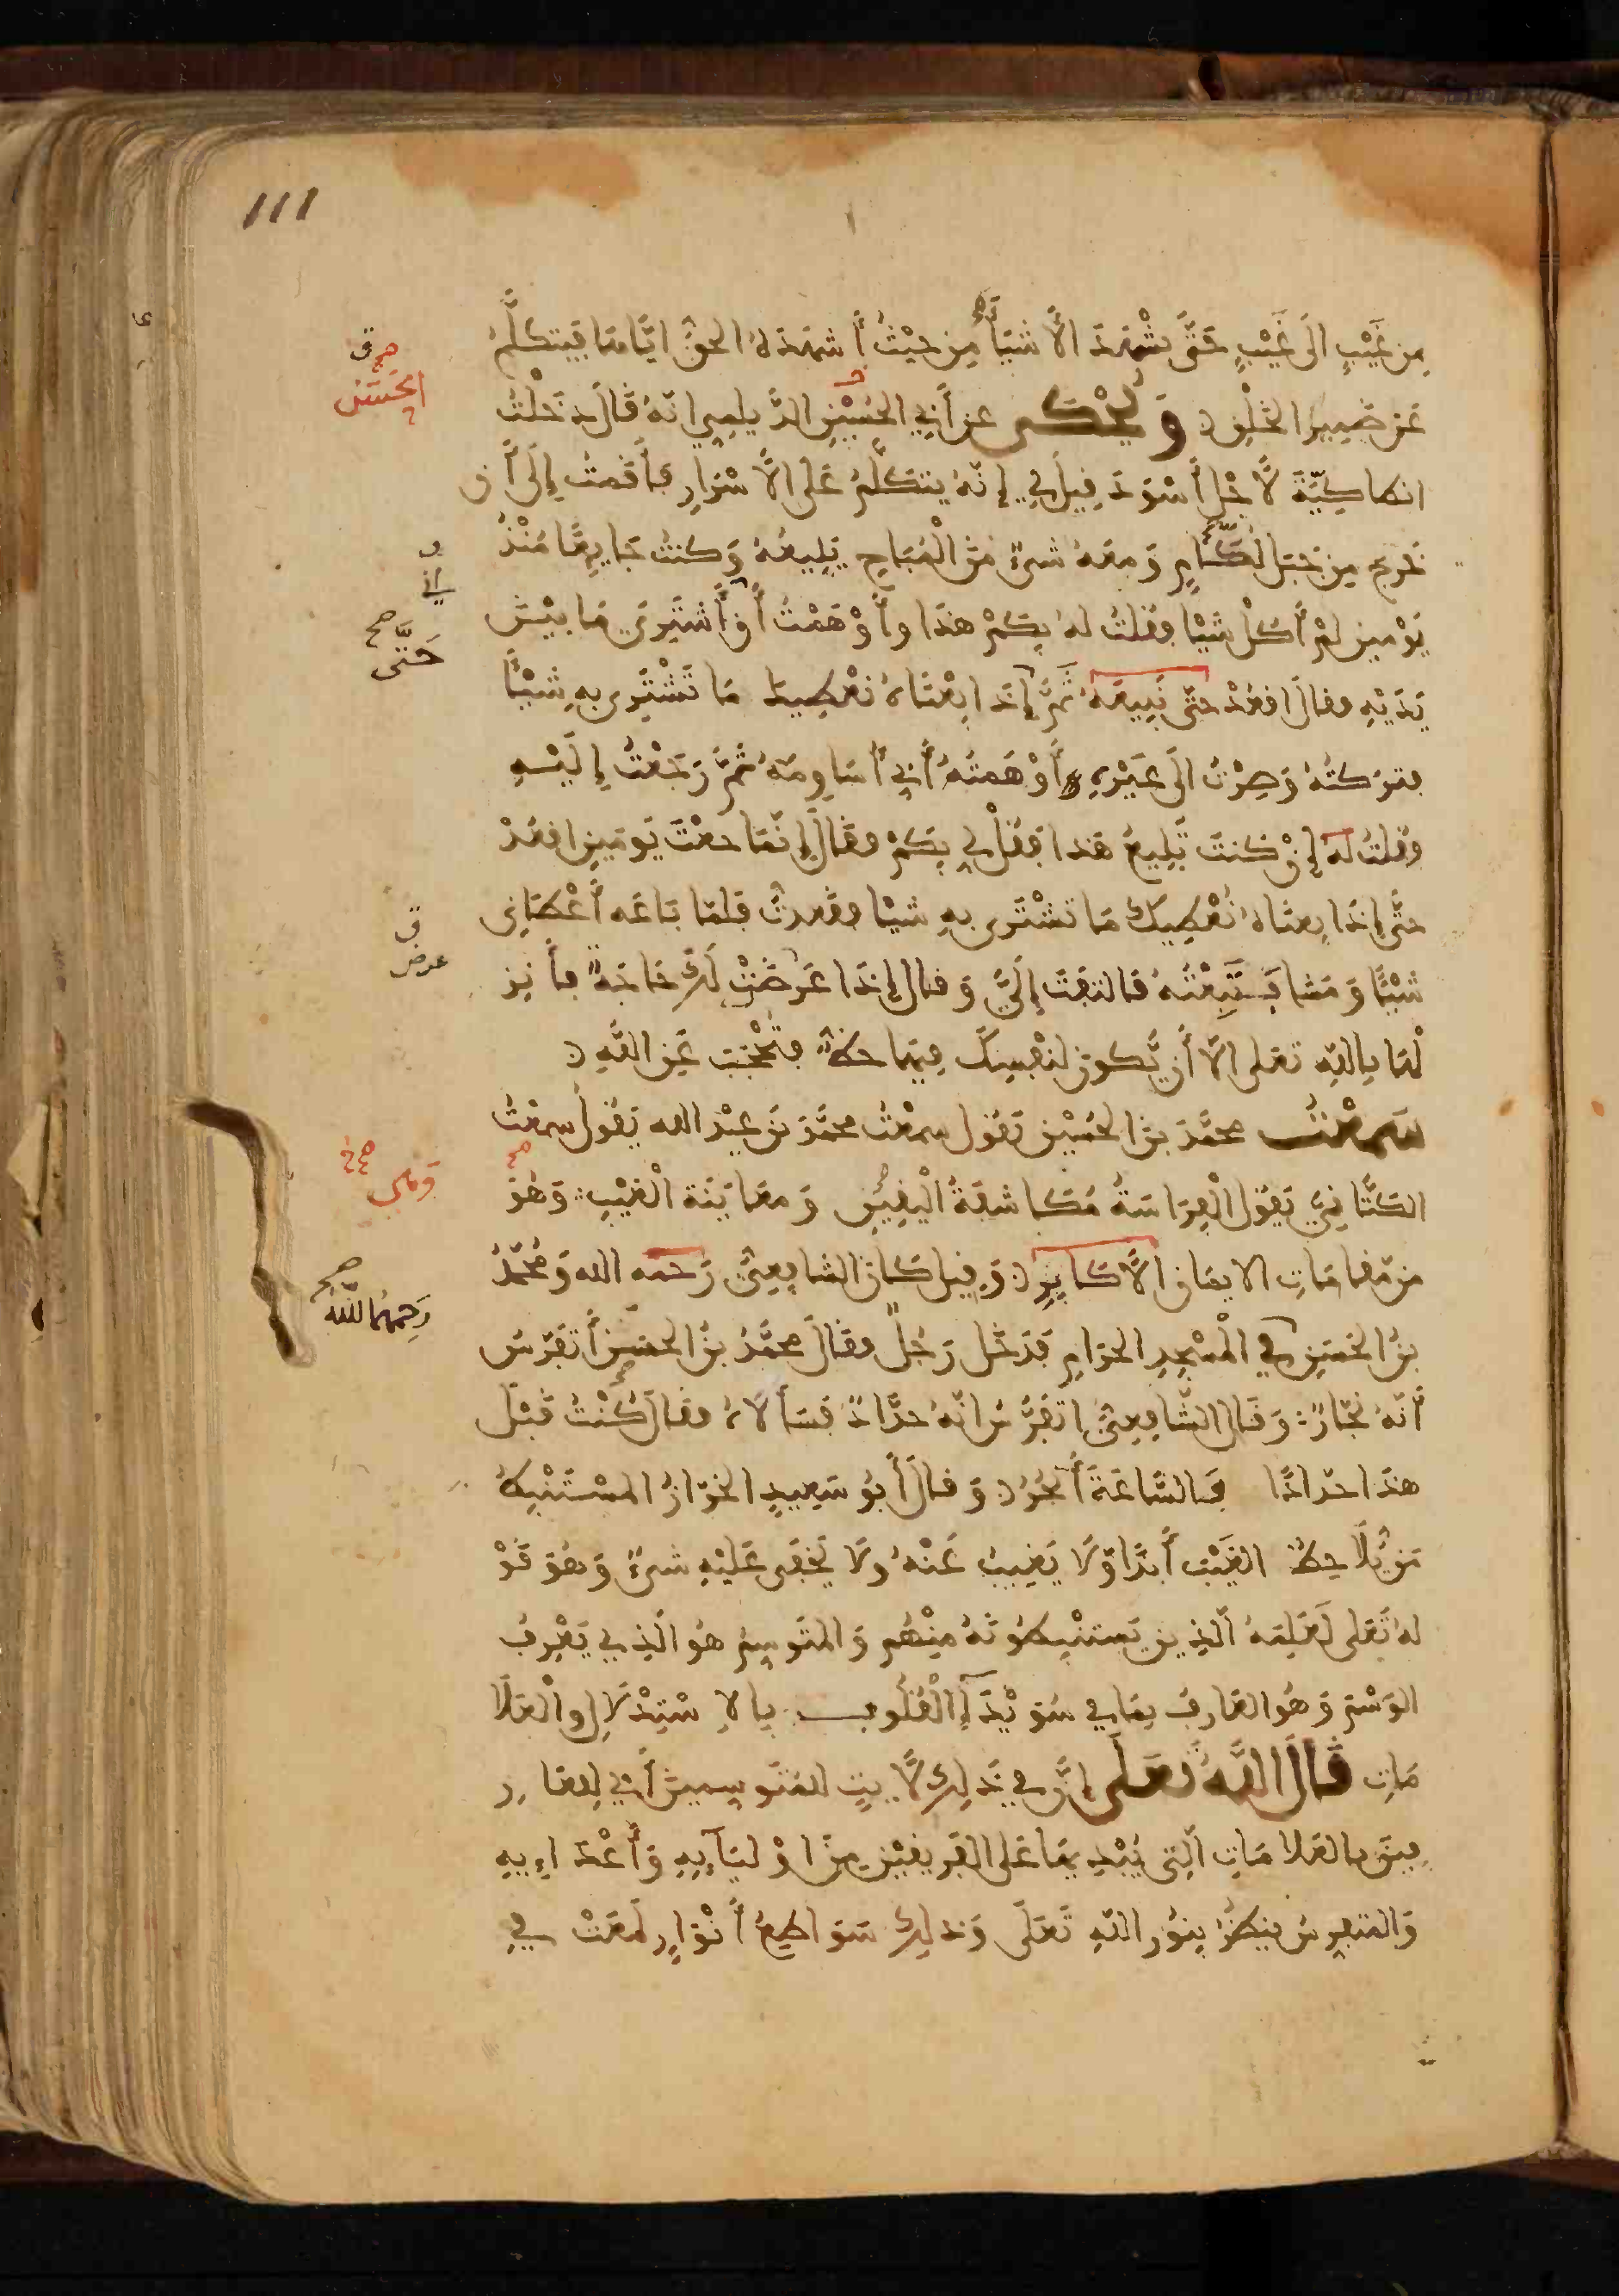 111
من غيب الى غيب حتى يشهد الأشياء من حيث أشهده الحق اياها فيتكلم
عن ضمير الخلق ويحكى عن أبي الحسين الديلمي انه قال دخلت
انطاكية لأجل أسود قيل لي إنه يتكلم على الأسرار فأقمت إلى أن
خرج من جبل لكام ومعه شيء من المباح يبيعه وكنت جايعا منذ
يومين لم آكل شيئا فقلت له بكم هذا وأوهمت أني أشتري ما بين
يديه فقال اقعد حتى نبيعه ثم إذا بعناه نعطيك ما تشتري به شيئا
فتركته وصرت الى غيره أوهمته أني أساومه ثم رجعت إليه
فقلت له إن كنت تبيع هذا فقل لي بكم فقال إنما جعت يومين اقعد
حتى إذا بعناه نعطيك ما تشترى به شيئا فقعدت فلما باعه أعطاني
شيئا ومشا فتبعته فالتفت إلي وقال إذا عرضت لك حاجة فأنز
لها بالله تعلى الا أن يكون لنفسك فيها حظ فتحجب عن الله
سمعت محمد بن الحسين يقول سمعت محمد بن عبد الله يقول سمعت
الكتاني يقول الفراسة مكاشفة اليقين ومعاينة الغيب وهو
من مقامات الايمان الأكابر وقيل كان الشافعي رحمه الله ومحمد
بن الحسن في المسجد الحرام فدخل رجل فقال محمد بن الحسن أتفرس
أنه نجار وقال الشافعي اتفرس انه حداد فسألاه فقال كنت قبل
هذا حدادا والساعة أنجر وقال أبو سعيد الخراز المستنبط
من يلاحظ الغيب أبدا ولا يغيب عنه ولا يخفى عليه شيء وهو قو
له تعلى لعلمه الذين يستنبطونه منهم والمتوسم هو الذي يعرف
الوسم وهو العارف بما في سويداء القلوب بالاستدلال والعلا
مات قال الله تعلى إن في ذلك لآيت للمتوسمين أي للعار
فين بالعلامات التي يبديها على الفريقين من اوليائه وأعدائه
والمتفرس ينظر بنور الله تعلى وذلك سواطع أنوار لمعت في
صح ق
الحسن
ني
صح
حتى
ق
عرض
صح
وهي
صح
رحمهما الله